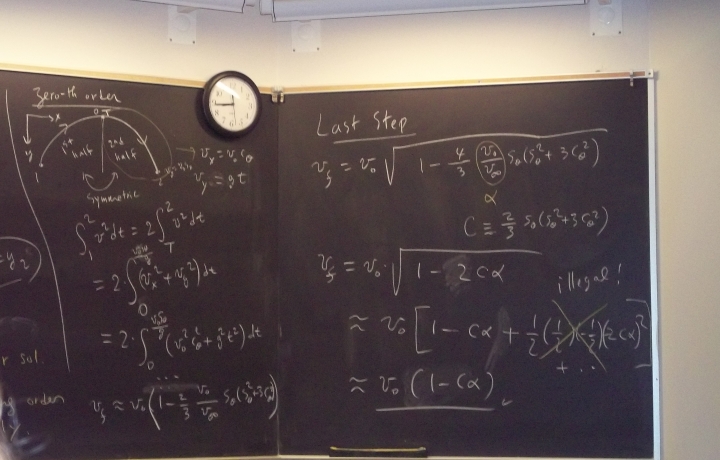 Zero-th order
x
0 T
y
1st half
2nd half
1
2
symmetric
→ v_x = v_0 c_θ
v_y = g t
∫_1^2 v² dt = 2 ∫_T^2 v² dt
= 2 · ∫_0^{v_0 s_θ / g} (v_x² + v_y²) dt
= 2 · ∫_0^{v_0 s_θ / g} (v_0² c_θ² + g² t²) dt
...
v_f ≈ v_0 (1 - 2/3 v_0/v_∞ s_θ (s_θ² + 3 c_θ²))
r sol.
order
Last Step
v_f = v_0 √(1 - 4/3 (v_0/v_∞) s_θ (s_θ² + 3 c_θ²))
α
C ≡ 2/3 s_θ (s_θ² + 3 c_θ²)
v_f = v_0 · √(1 - 2 c α)
illegal!
≈ v_0 [1 - cα + 1/2 (1/2)(-1/2)(2cα)²
+ ...
≈ v_0 (1 - cα)